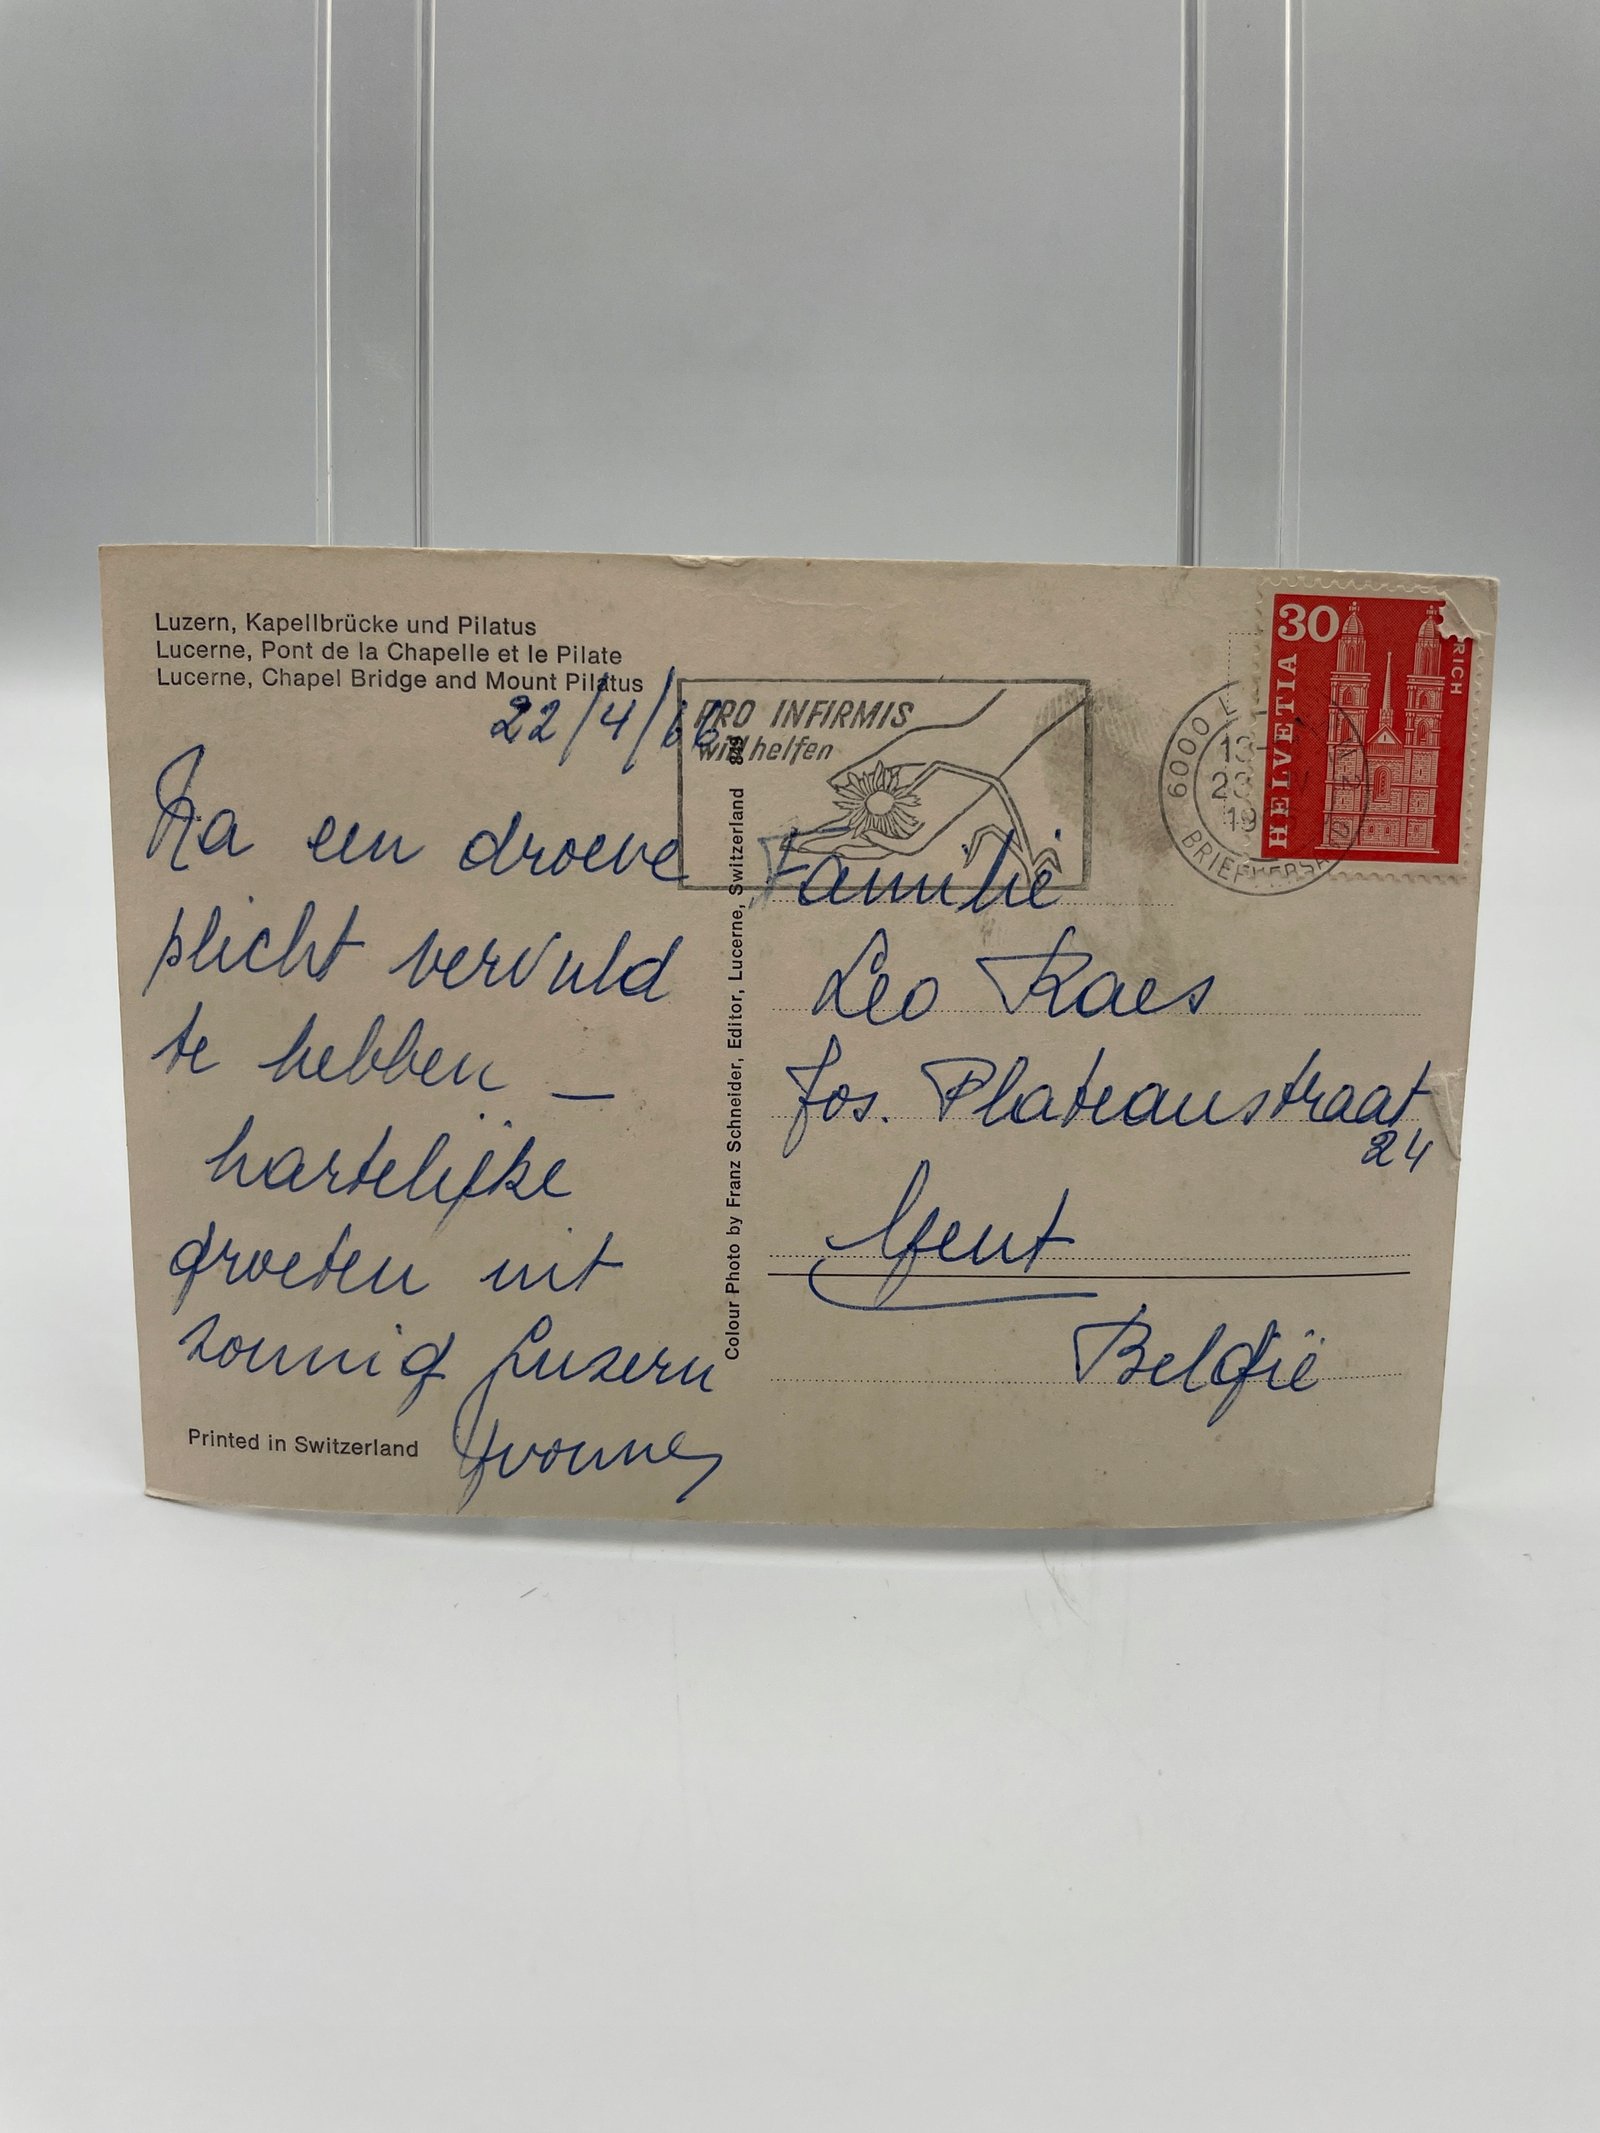 Luzern, Kapellbrücke und Pilatus
Lucerne, Pont de la Chapelle et le Pilate
Lucerne, Chapel Bridge and Mount Pilatus
22/4/66
Na een droeve
plicht vervuld
te hebben —
hartelijke
groeten uit
zonnig Luzern
Yvonne
Printed in Switzerland
Colour Photo by Franz Schneider, Editor, Lucerne, Switzerland
PRO INFIRMIS
will helfen
6000 L
BRIEFVERSAND
30
HELVETIA
RICH
Familie
Leo Raes
Jos. Plateaustraat
24
Gent
België